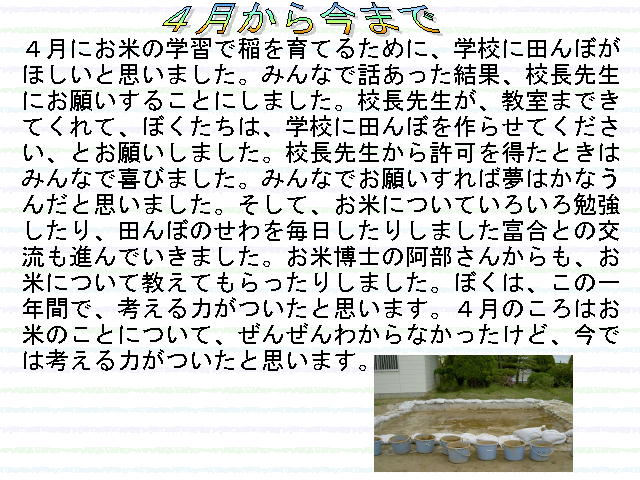 ４月から今まで
４月にお米の学習で稲を育てるために、学校に田んぼが
ほしいと思いました。みんなで話あった結果、校長先生
にお願いすることにしました。校長先生が、教室まできて
くれて、ぼくたちは、学校に田んぼを作らせてくださ
い、とお願いしました。校長先生から許可を得たときは
みんなで喜びました。みんなでお願いすれば夢はかなう
んだと思いました。そして、お米についていろいろ勉強
したり、田んぼのせわを毎日したりしました富合との交
流も進んでいきました。お米博士の阿部さんからも、お
米について教えてもらったりしました。ぼくは、この一
年間で、考える力がついたと思います。４月のころはお
米のことについて、ぜんぜんわからなかったけど、今で
は考える力がついたと思います。